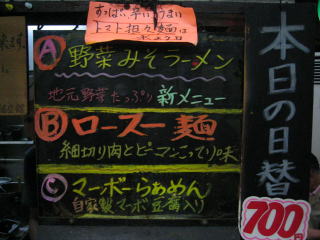 すっぱい辛いうまい
トマト担々麺は
A 野菜みそラーメン
地元野菜たっぷり 新メニュー
B ロースー麺
細切り肉とピーマンこってり味
C マーボーらぁめん
自家製マーボ豆腐入り
本日の日替
700